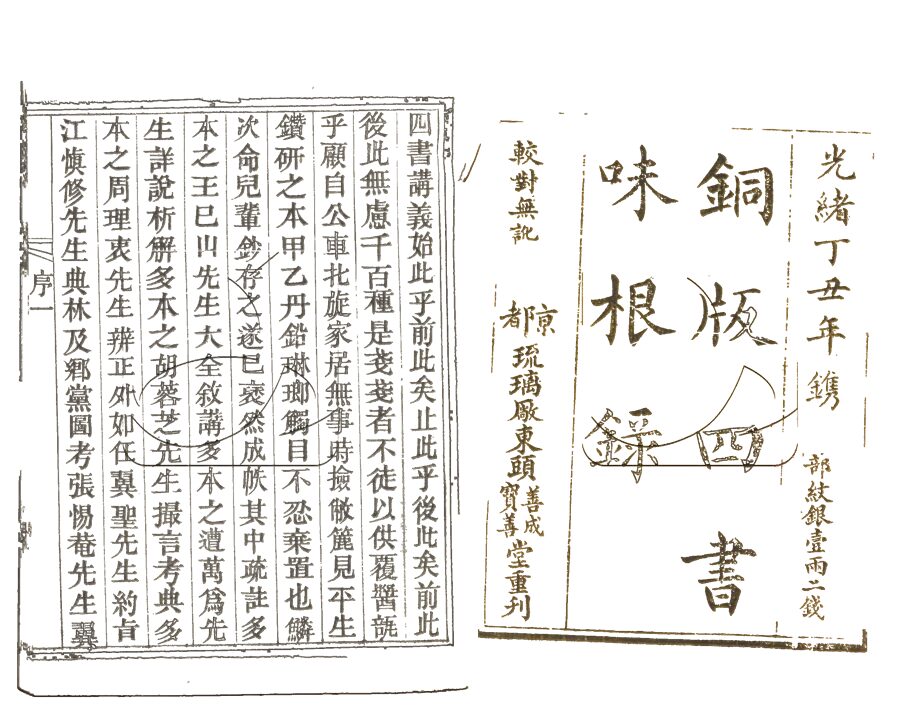 光緒丁丑年鐫
部紋銀壹兩二錢
銅版四書
味根錄
較對無訛
京都琉璃厰東頭善成寶善堂重刊
四書講義始此乎前此矣止此乎後此矣前此
後此無慮千百種是戔戔者不徒以供覆醬瓿
乎顧自公車北旋家居無事時撿敝簏見平生
鑽研之本甲乙丹鉛琳瑯觸目不忍棄置也鱗
次命兒輩鈔存之遂已裒然成帙其中疏註多
本之王已山先生大全敘講多本之遭萬爲先
生詳說析解多本之胡蓉芝先生撮言考典多
本之周理衷先生辨正外如任翼聖先生約㫖
江愼修先生典林及鄉黨圖考張惕菴先生翼
序一